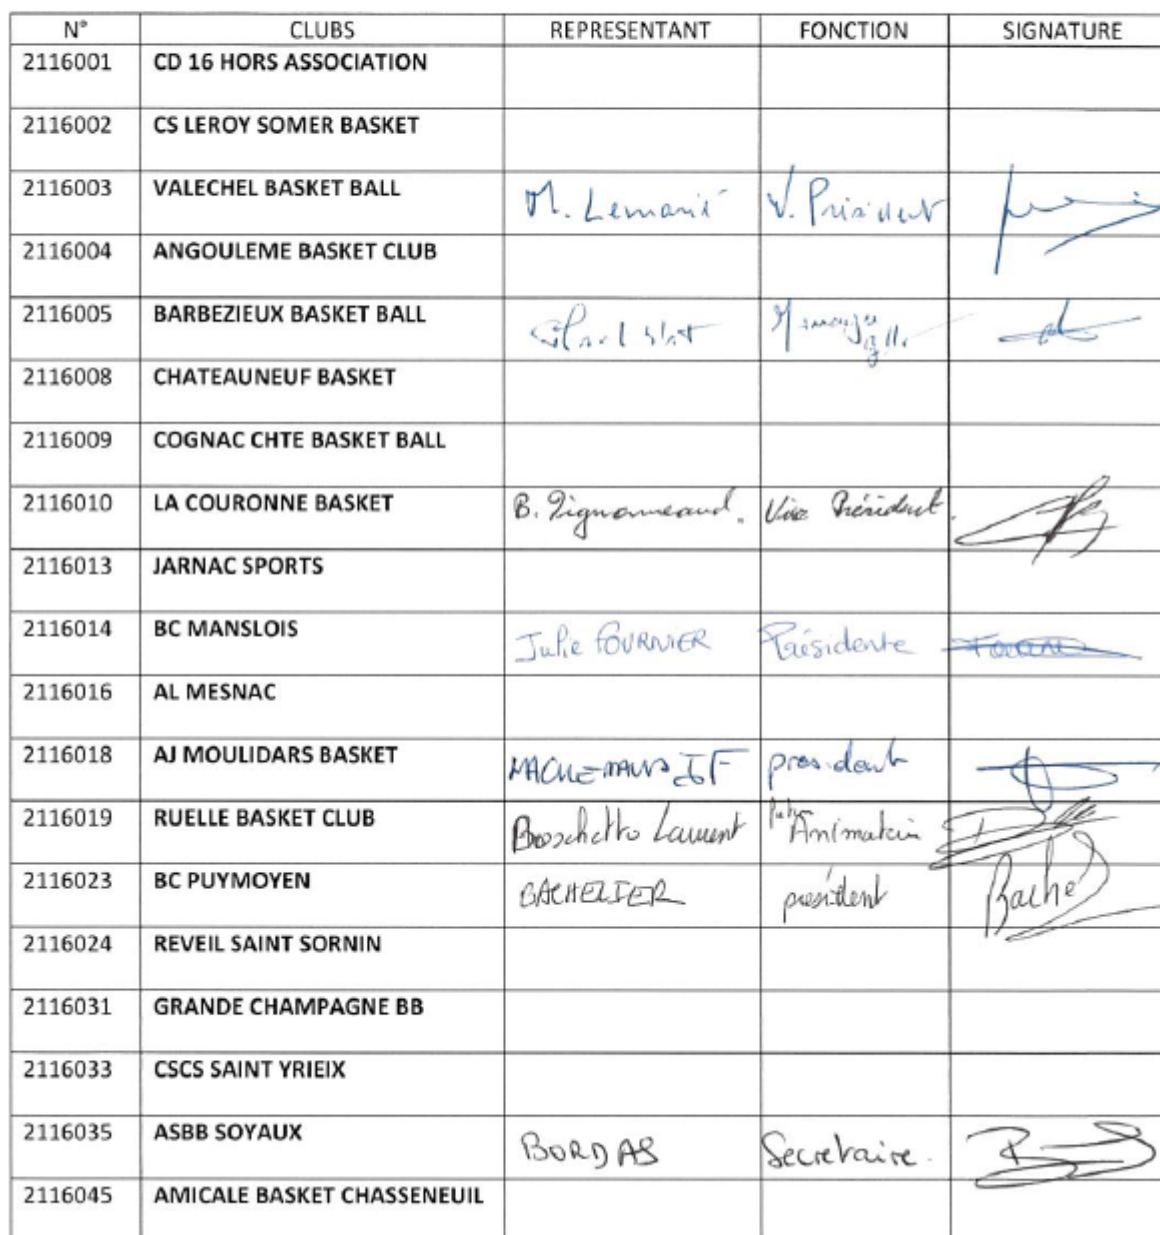 N° CLUBS REPRESENTANT FONCTION SIGNATURE
2116001 CD 16 HORS ASSOCIATION
2116002 CS LEROY SOMER BASKET
2116003 VALECHEL BASKET BALL M. Lemarié V. Président
2116004 ANGOULEME BASKET CLUB
2116005 BARBEZIEUX BASKET BALL
2116008 CHATEAUNEUF BASKET
2116009 COGNAC CHTE BASKET BALL
2116010 LA COURONNE BASKET B. Vice Président.
2116013 JARNAC SPORTS
2116014 BC MANSLOIS Julie FOURNIER Présidente
2116016 AL MESNAC
2116018 AJ MOULIDARS BASKET JF president
2116019 RUELLE BASKET CLUB Boschetto Laurent Animation
2116023 BC PUYMOYEN BACHELIER président Bache
2116024 REVEIL SAINT SORNIN
2116031 GRANDE CHAMPAGNE BB
2116033 CSCS SAINT YRIEIX
2116035 ASBB SOYAUX BORDAS Secretaire.
2116045 AMICALE BASKET CHASSENEUIL